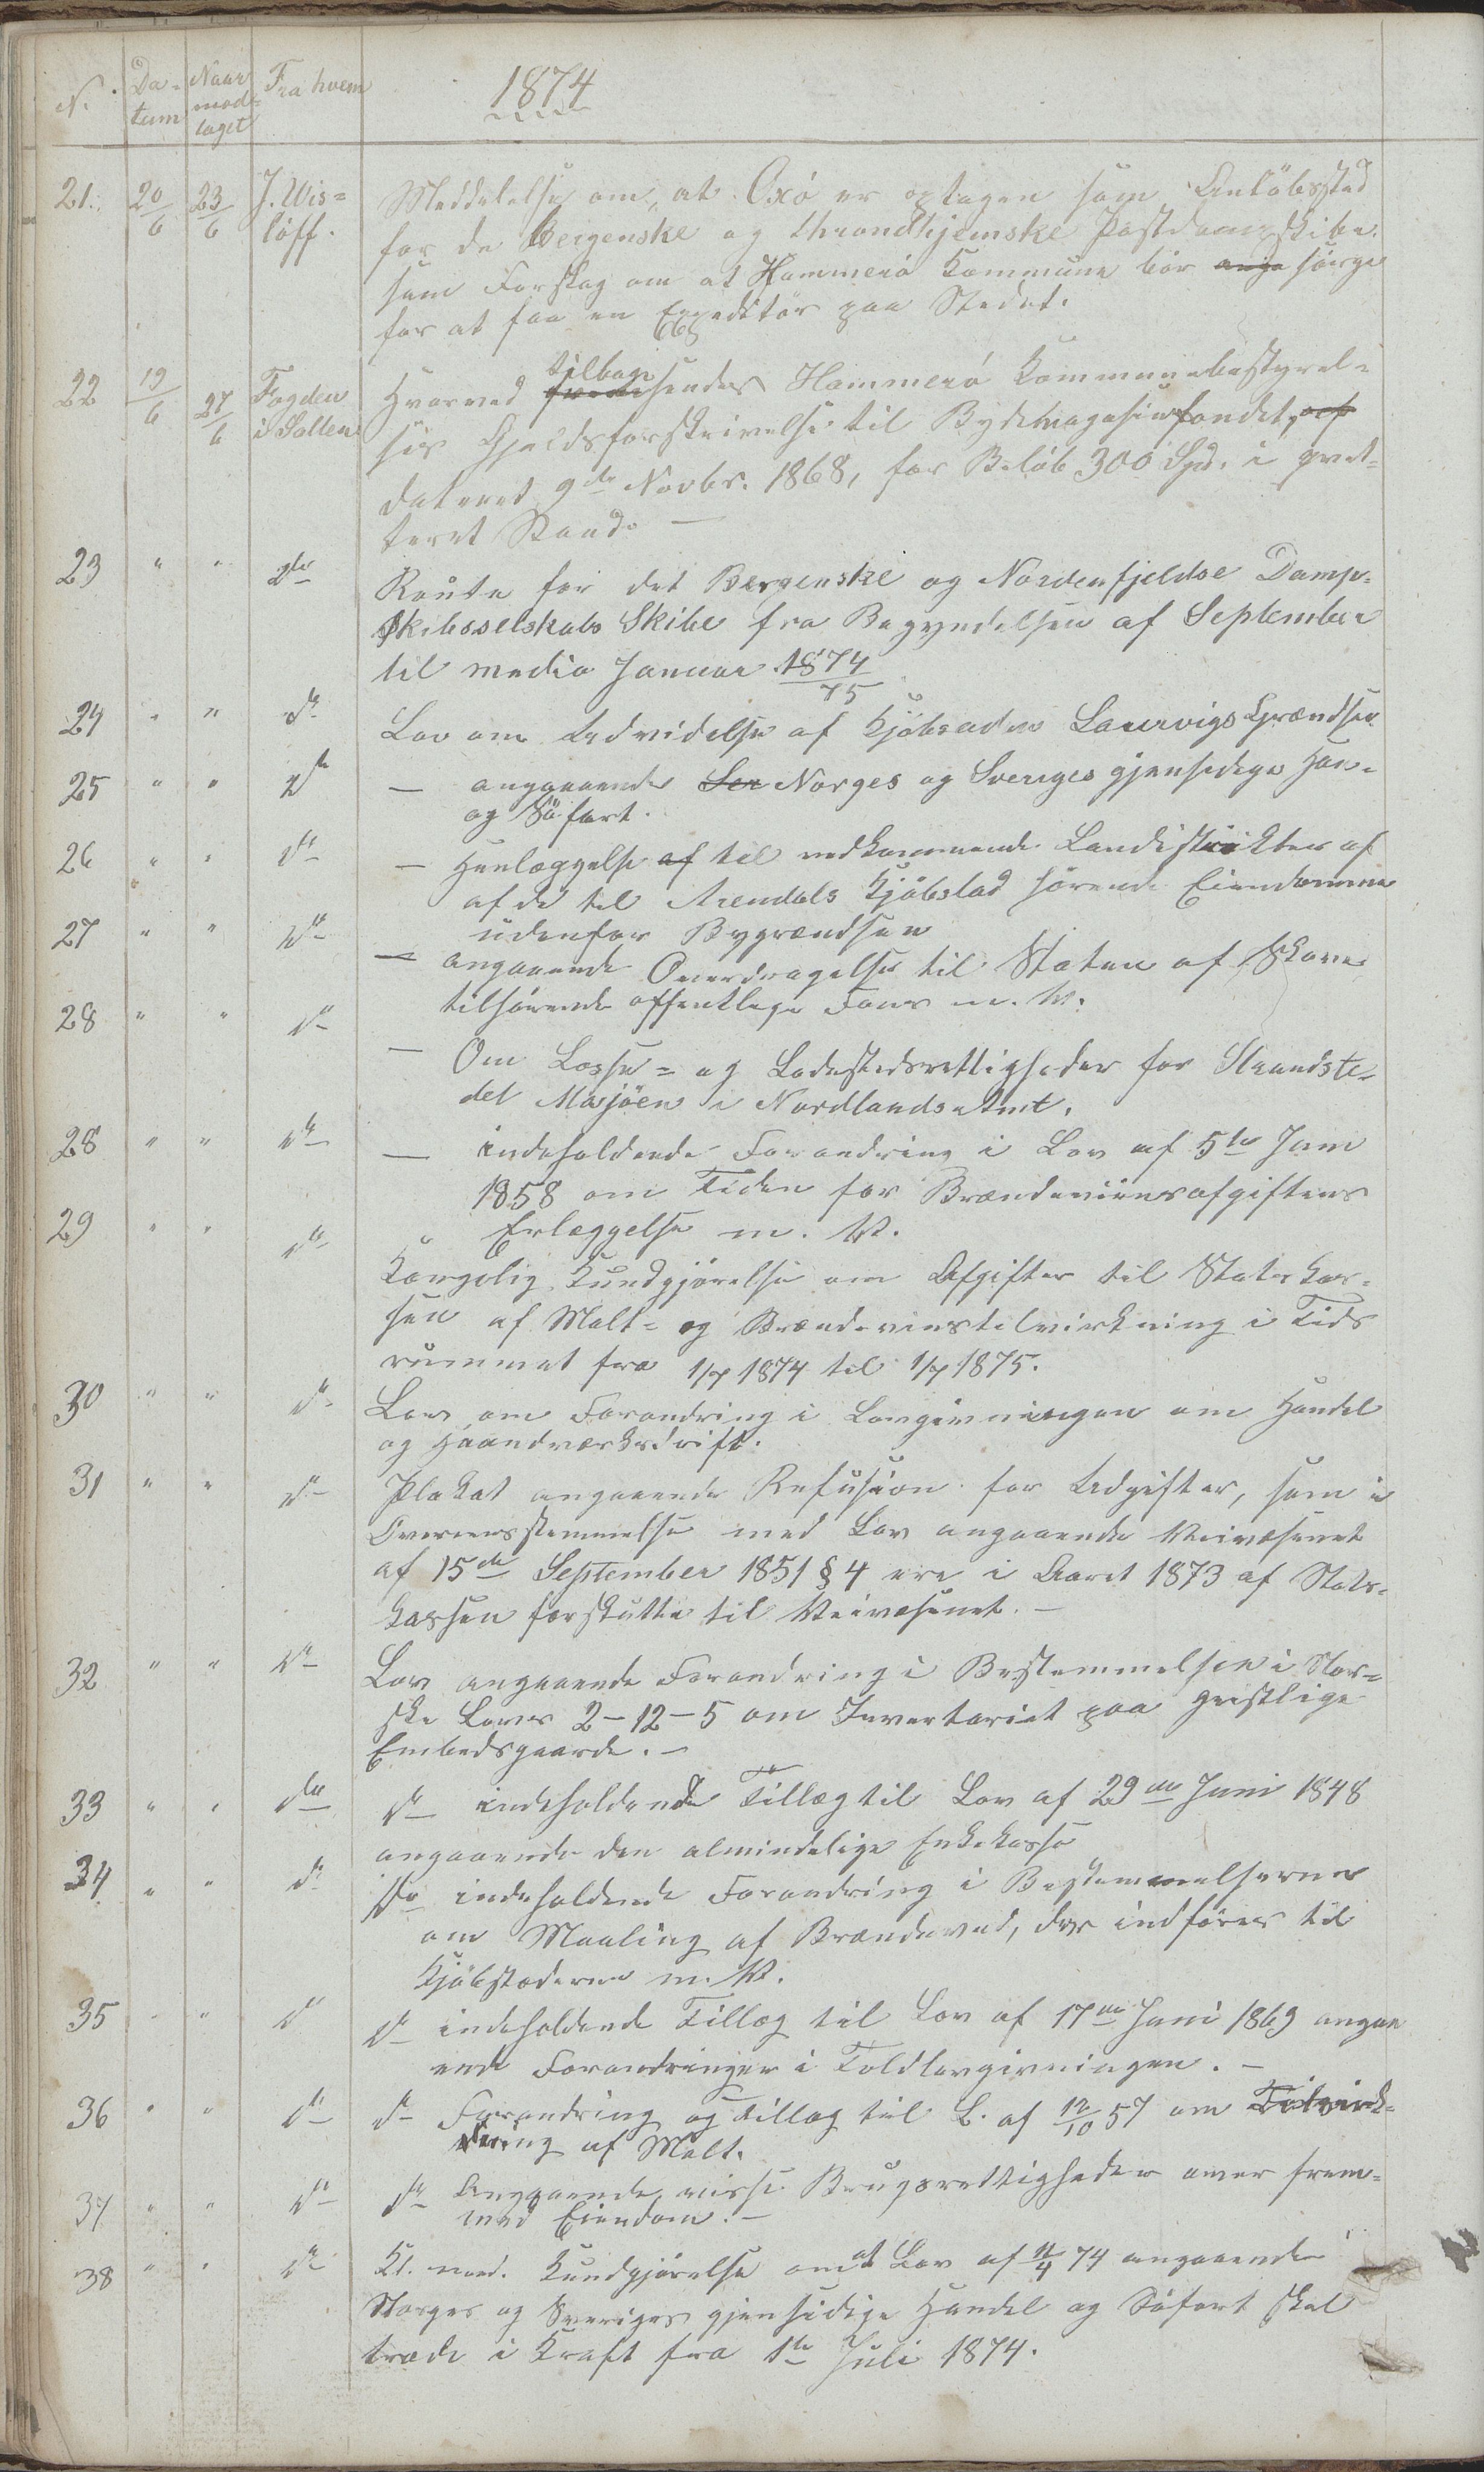 N. Da- Naar Fra hvem 1874
tum mod-
taget
21. 20/6 23/6 J. Wis- Meddelelse om, at Oxö er optagen som Anlöbssted
löff. for de Bergenske og throndhjemske Postdampskibe
som Forslag om at Hammerö Kommune bör sörge
for at faa en Expeditör paa Stedet.
22 19/6 27/6 Fogden Hvorved tilbagesendes Hammerö Kommunebestyrel-
i Salten ses Gjeldsforskrivelse til Bygdemagasinfondet,
dateret 9de Novbr. 1868, for Belöb 300 Spd. i qvit-
teret Stand. —
23 " " Do Route for det Bergenske og Nordenfjeldse Damp-
skibsselskabs Skibe fra Begyndelsen af September
til medio Januar 1874/75
24 " " Do Lov om Udvidelse af Kjöbstaden Laurvigs Grændser
25 " " Do — angaaende Norges og Sveriges gjensidige Han-
og Söfart.
26 " " Do — Henlæggelse af til vedkommende Landistrikter af
af de til Arendals Kjöbstad hörende Eiendomme
udenfor Bygrændsen
27 " " Do — angaaende Overdragelse til Staten af Skove
tilhörende offentlige Fons m. V.
28 " " Do — Om Losse- og Ladestedsrettigheder for Strandste-
det Mosjöen i Nordlands Amt.
28 " " Do — indeholdende Forandring i Lov af 5te Juni
1858 om Tiden for Brændeviinsafgiftens
Erlæggelse m. V.
29 " " Do Kongelig Kundgjörelse om Afgifter til Statskas-
sen af Malt- og Brændevinstilvirkning i Tids
rummet fra 1/7 1874 til 1/7 1875.
30 " " Do Lov om Forandring i Lovgivningen om Handel
og Haandværksdrift.
31 " " Do Plakat angaaende Refusion for Udgifter, som i
Overensstemmelse med Lov angaaende Veivæsenet
af 15de September 1851 § 4 ere i Aaret 1873 af Stats-
kassen forskutte til Veivæsenet. —
32 " " Do Lov angaaende Forandring i Bestemmelsen i Nor-
ske Lovs 2-12-5 om Inventariet paa Geistlige
Embedsgaarde. —
33 " " Do Do indeholdende Tillæg til Lov af 29de Juni 1848
angaaende den almindelige Enkekasse
34 " " Do Do indeholdende Forandring i Bestemmelserne
om Maaling af Brændeved, der indföres til
Kjöbstæderne m. V.
35 " " Do Do indeholdende Tillæg til Lov af 17de Juni 1869 angaa
ende Forandringer i Toldlovgivningen. —
36 " " Do Do Forandring og tillæg til L. af 12/10 57 om Tilvirk-
ning af Malt.
37 " " Do Do Angaaende visse Brugsrettigheder over frem-
med Eiendom. —
38 " " Do Kl. Kundgjörelse om at Lov af 11/4 74 angaaende
Norges og Sveriges gjensidige Handel og Söfart skal
træde i Kraft fra 1te Juli 1874.